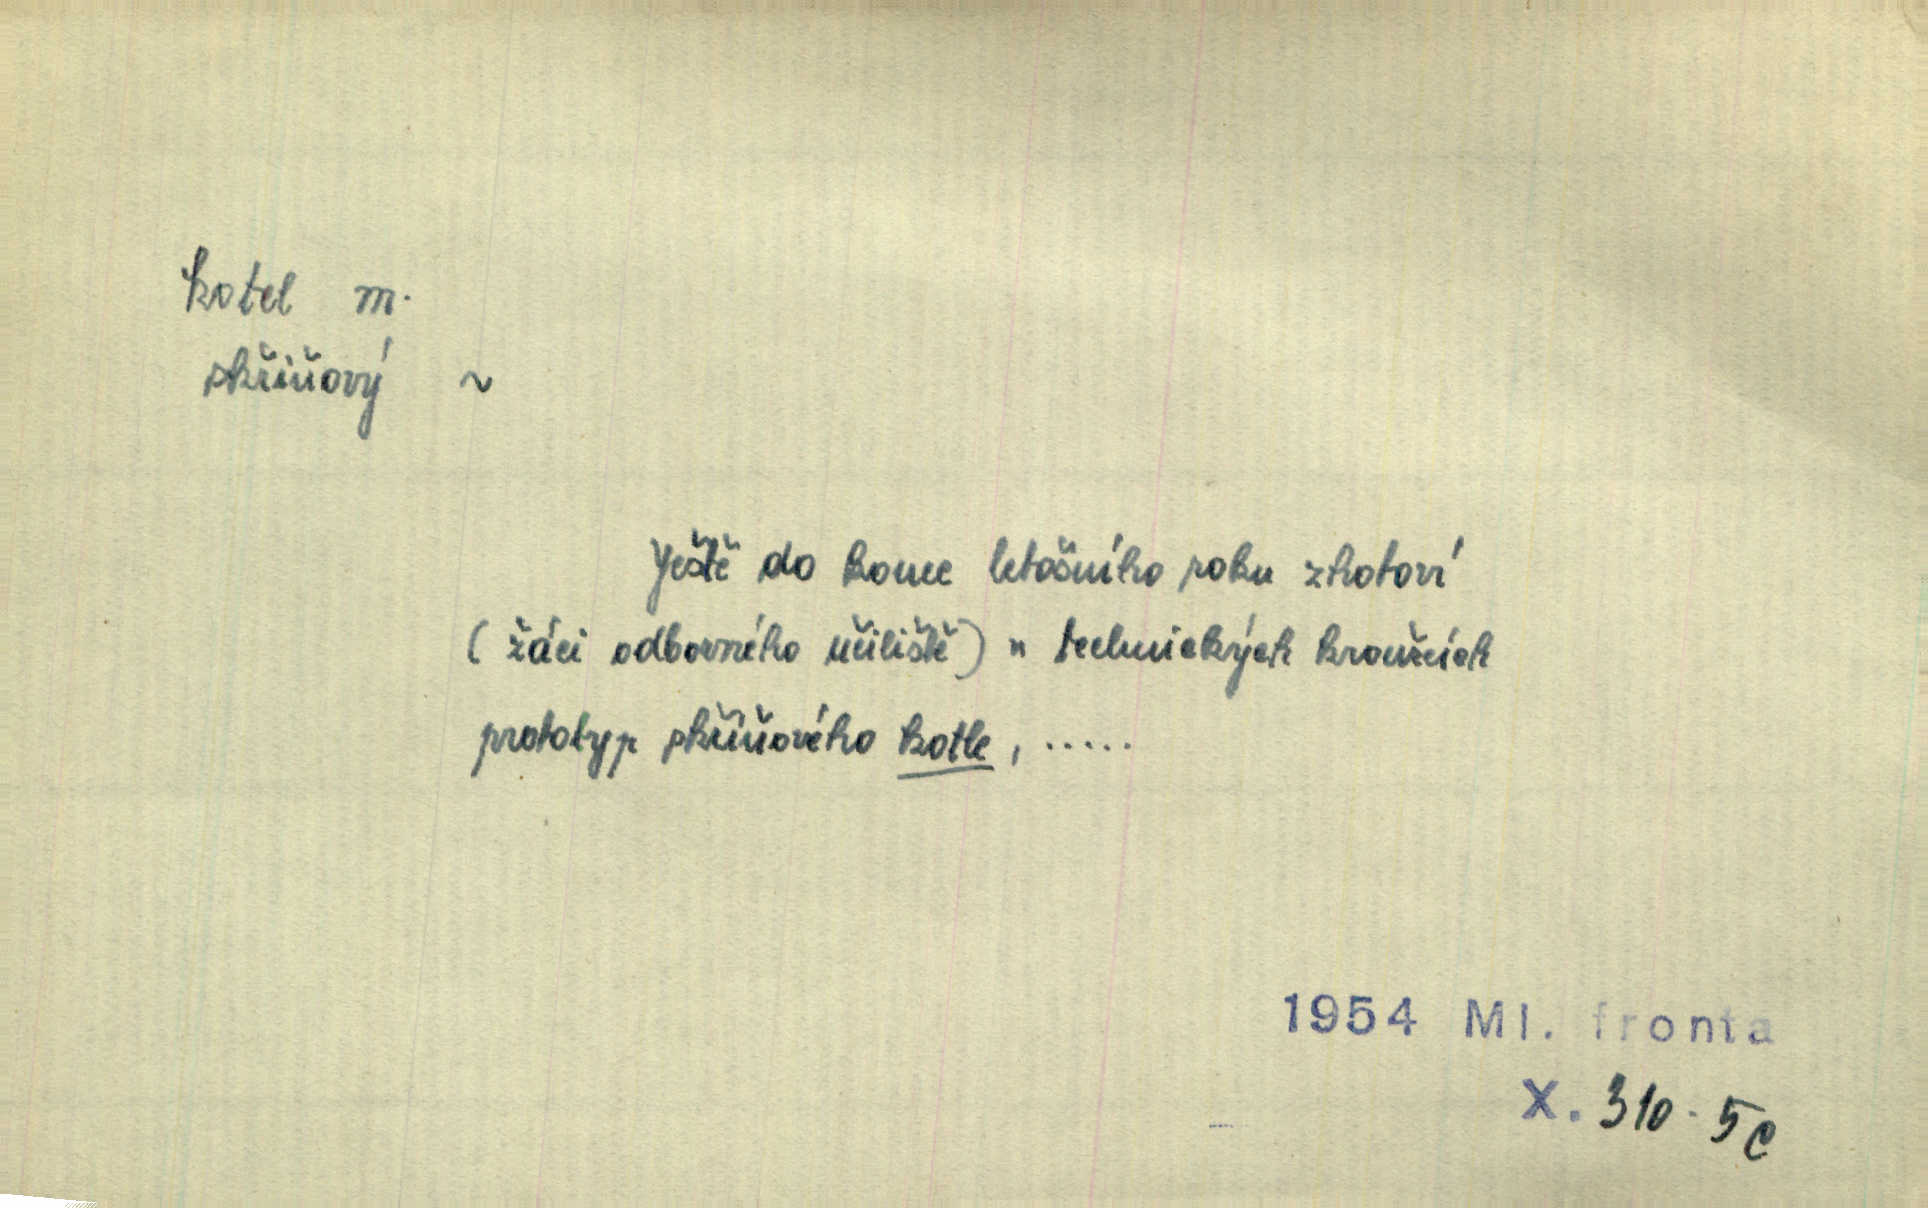 kotel m.
skříňový ~
Ještě do konce letošního roku zhotoví
(žáci odborného učiliště) v technických kroužcích
prototyp skříňového kotle, .....
1954 Ml. fronta
X. 310 - 5c